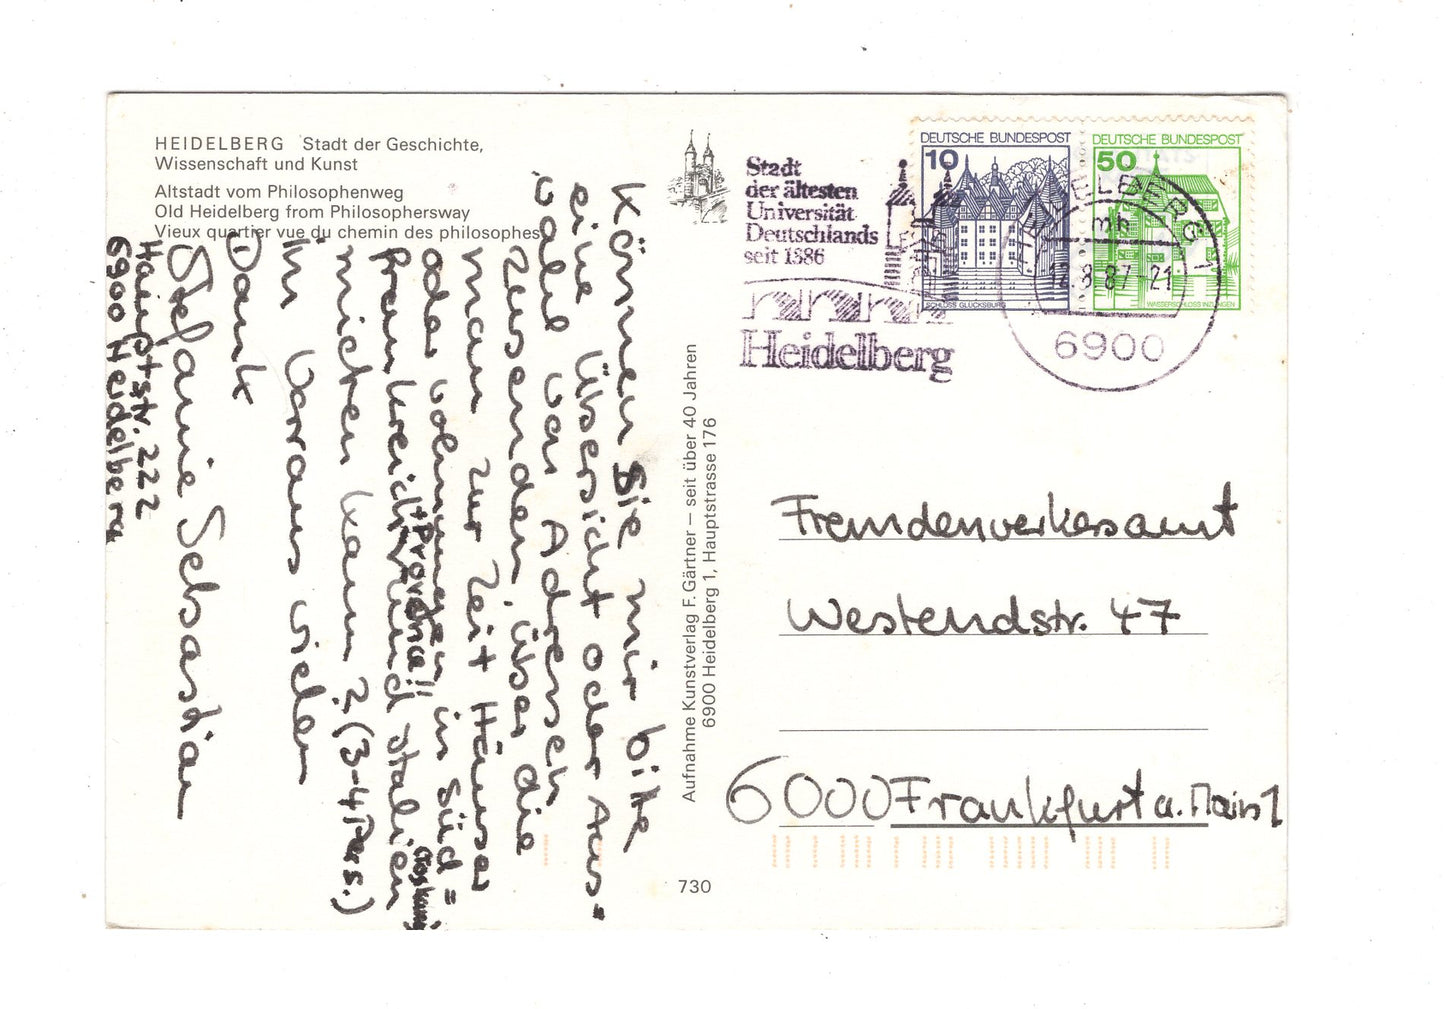 HEIDELBERG Stadt der Geschichte,
Wissenschaft und Kunst
Altstadt vom Philosophenweg
Old Heidelberg from Philosophersway
Vieux quartier vue du chemin des philosophes
Können Sie mir bitte
eine Übersicht oder Aus=
wahl von Adressen
zusenden, über die
man zur Zeit Häuser
oder Wohnungen in Süd=
frankreich und Italien
+ Provence!!
Toskana
mieten kann? (3-4 Pers.)
Im Vorraus vielen
Dank
Stefanie Sebastian
Hauptstr. 222
6900 Heidelberg
Aufnahme Kunstverlag F. Gärtner – seit über 40 Jahren
6900 Heidelberg 1, Hauptstrasse 176
730
Stadt
der ältesten
Universität
Deutschlands
seit 1386
Heidelberg
DEUTSCHE BUNDESPOST
10
SCHLOSS GLÜCKSBURG
DEUTSCHE BUNDESPOST
50
WASSERSCHLOSS INZLINGEN
HEIDELBERG 1
mh
12.8.87-21
6900
Fremdenverkesamt
Westendstr. 47
6000 Frankfurt a. Main 1